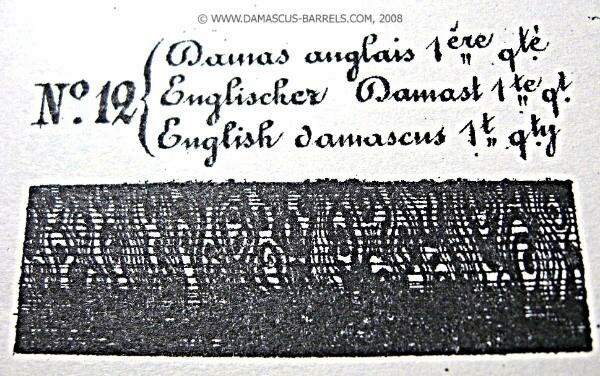 © WWW.DAMASCUS-BARRELS.COM, 2008
Nº. 12
Damas anglais 1ère qté
Englischer Damast 1te qt.
English damascus 1t qty